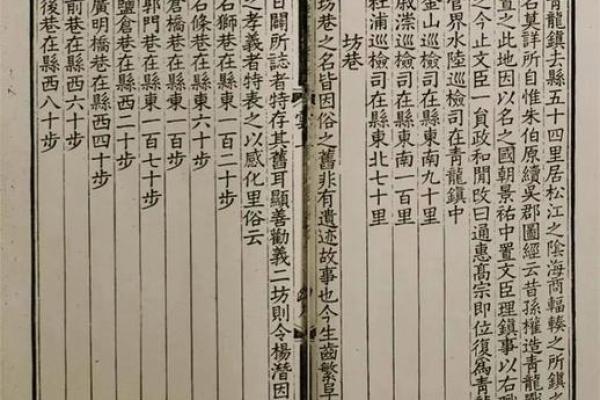 青龍鎮去縣五十四里居松江之陰海商輻輳之所鎮之
名莫詳所自惟朱伯原續吳郡圖經云昔孫權造青龍戰
置之此地因以名之國朝景祐中置文臣理鎮事以右職
之今止文臣一員政和間改曰通惠高宗即位復爲青龍
管界水陸巡檢司在青龍鎮中
金山巡檢司在縣東南九十里
戚崇巡檢司在縣東南一百里
杜浦巡檢司在縣東北七十里
坊巷
坊巷之名皆因俗之舊非有遺迹故事也今生齒繁阜
日闢所誌者特存其舊耳顯善勸義二坊則令楊潛因
之孝義者特表之以感化里俗云
石獅巷在縣東一百二十步
石條巷在縣東六十步
倉橋巷在縣東一百步
郭門巷在縣東一百七十步
鹽倉巷在縣西二十步
廣明橋巷在縣西四十步
前巷在縣西六十步
後巷在縣西八十步